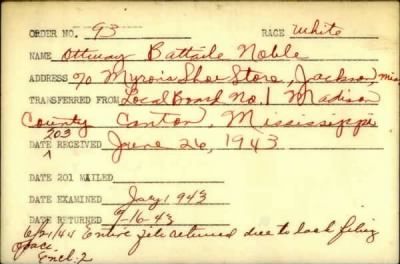 ORDER NO. 93 RACE White
NAME Ottway Battaile Noble
ADDRESS % Myron's Shoe Store, Jackson, Miss
TRANSFERRED FROM Local Board No. 1 Madison
County Canton, Mississippi
203
DATE RECEIVED June 26, 1943
DATE 201 MAILED
DATE EXAMINED July, 1943
DATE RETURNED 7-16-43
6/21/44 Entire file returned due to lack filing
space.
Encl-2